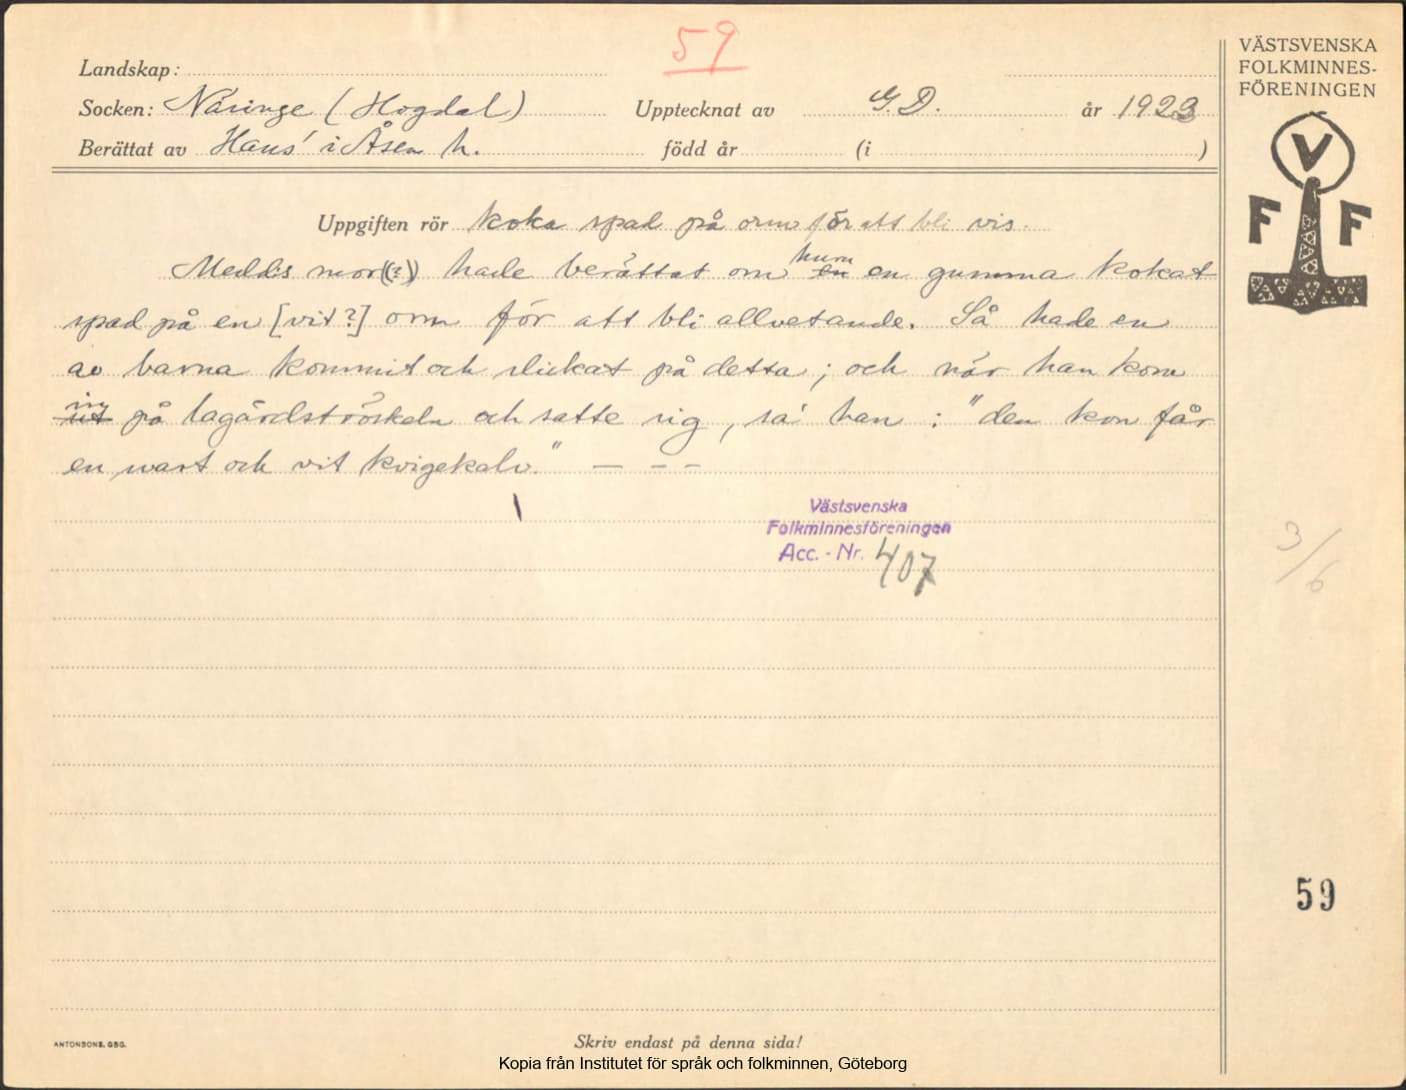 59
Landskap:
Socken: Näsinge (Hogdal) Upptecknat av G. D. år 1923
Berättat av Hans' i Åsen h. född år (i )
Uppgiften rör koka spad på orm för att bli vis.
Medd:s mor((?)) hade berättat om huru en en gumma kokat
spad på en [vit?] orm för att bli allvetande. Så hade en
av barna kommit och slickat på detta; och när han kom
in ut på lagårdströskeln och satte sig, sa' han: "den kon får
en svart och vit kvigekalv." — – –
Västsvenska
Folkminnesföreningen
Acc. - Nr. 407
VÄSTSVENSKA
FOLKMINNES-
FÖRENINGEN
V
F F
3/6
59
ANTONSONS, GBG.
Skriv endast på denna sida!
Kopia från Institutet för språk och folkminnen, Göteborg